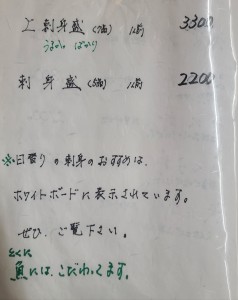 上刺身盛(7品) 1人前 3300
刺身盛(5品) 1人前 2200
※日替りの刺身のおすすめは、
ホワイトボードに表示されています。
ぜひ、ご覧下さい。
とくに
魚には、こだわってます。